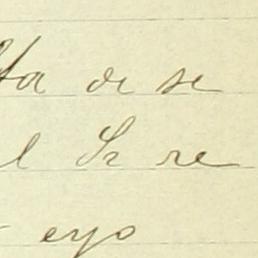 ta de se
l Sr re
eyo